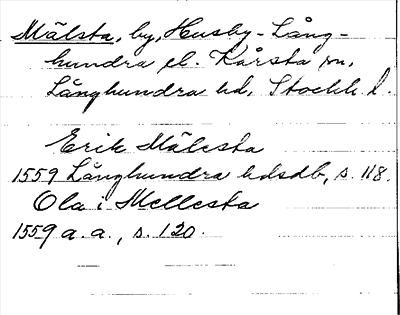 Mälsta, by, Husby-Lång-
hundra el. Kårsta sn,
Långhundra hd, Stockh. l.
Erik Mälesta
1559 Långhundra hdsdb, s. 118.
Ola i Mellesta
1559 a. a., s. 120.